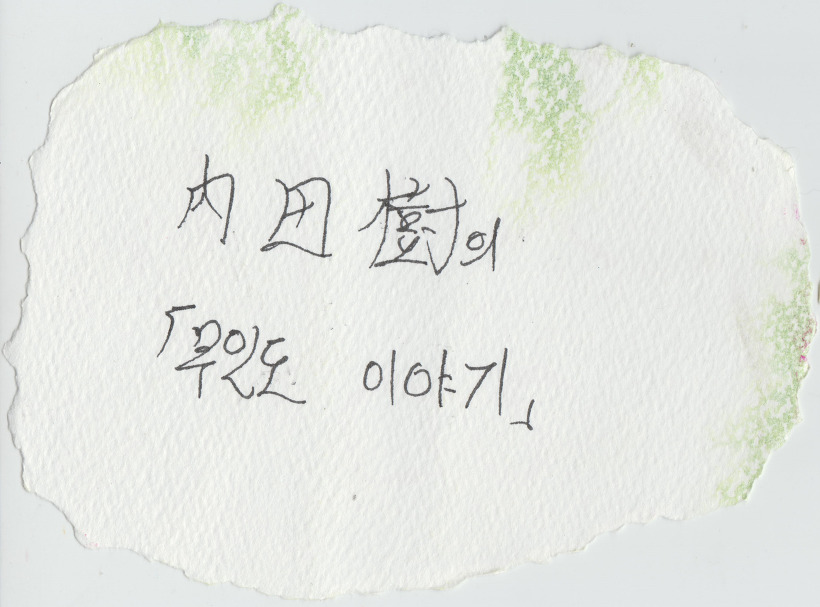 内田樹의
「무인도 이야기」